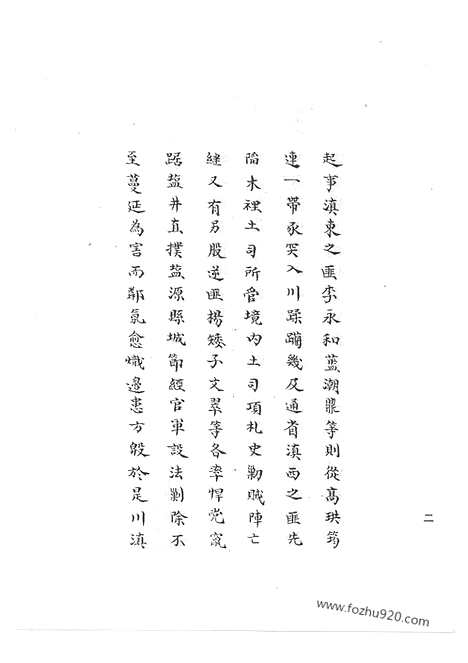 起事滇東之匪李永和藍潮鼎等則從高珙筠
連一帶承突入川蹂躪幾及通省滇西之匪先
陷木裡土司所管境內土司項札史勦賊陣亡
繼又有另股逆匪楊矮子文翠等各率悍党竄
踞盐井直撲盐源縣城節經官軍設法剿除不
至蔓延為害而鄰氛愈熾邊患方殷於是川滇
二
www.fozhu920.com